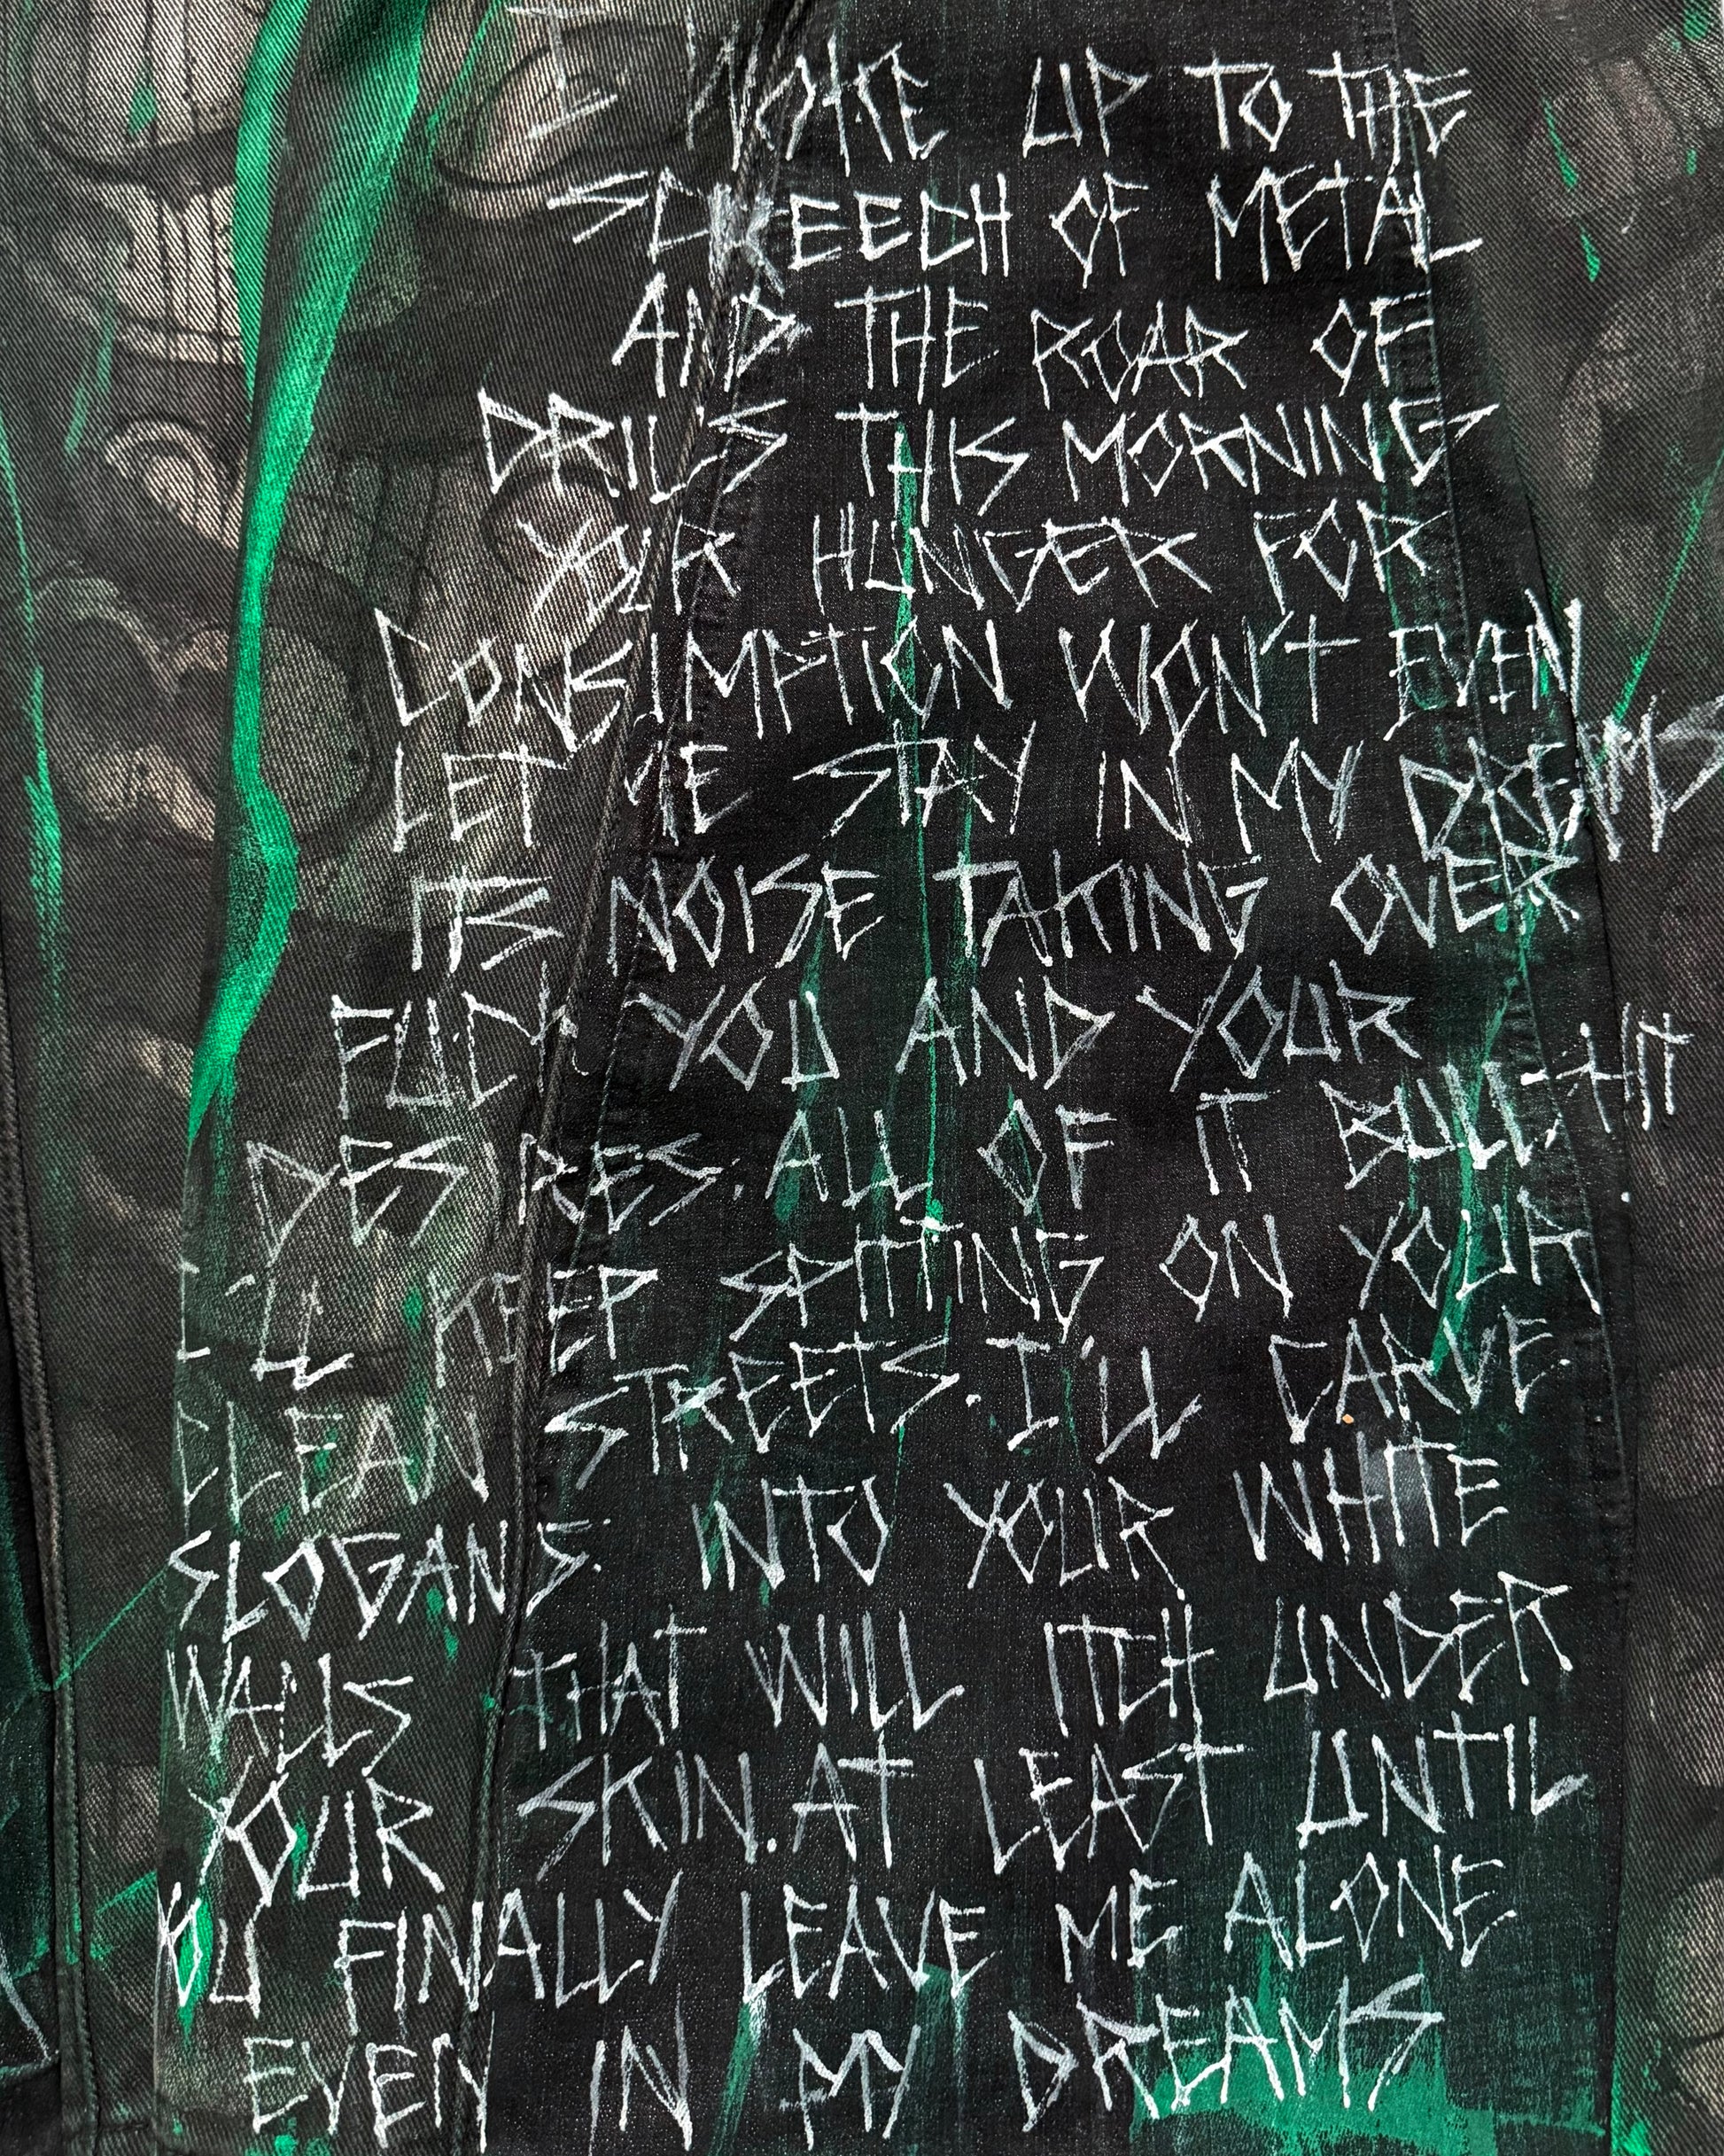 I WOKE UP TO THE
SCREECH OF METAL
AND THE ROAR OF
DRILLS THIS MORNING
YOUR HUNGER FOR
CONSUMPTION WON'T EVEN
LET ME STAY IN MY DREAMS
ITS NOISE TAKING OVER
FUCK YOU AND YOUR
DESIRES. ALL OF IT BULLSHIT.
I'LL KEEP SPITTING ON YOUR
CLEAN STREETS. I'LL CARVE
SLOGANS INTO YOUR WHITE
WALLS THAT WILL ITCH UNDER
YOUR SKIN. AT LEAST UNTIL
YOU FINALLY LEAVE ME ALONE
EVEN IN MY DREAMS